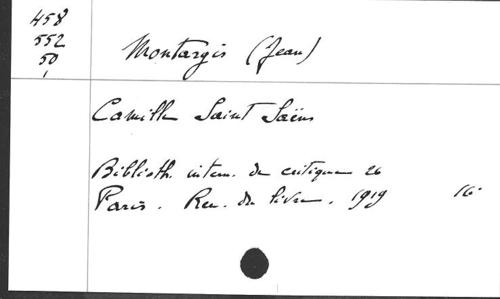 458
552
50
Montargis (Jean)
Camille Saint Saëns
Biblioth. intern. de critique 26
Paris. Ren. du livre, 1919 16°